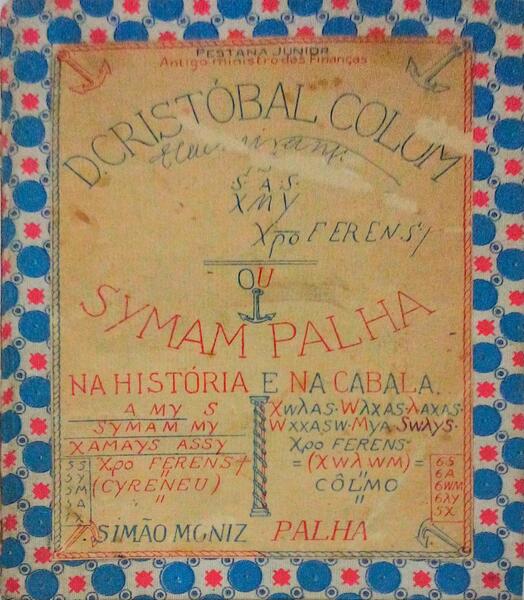 PESTANA JUNIOR
Antigo ministro das Finanças
D. CRISTÓBAL COLUM
S. A. S.
X M Y
Xpo FERENS./
OU
SYMAM PALHA
NA HISTÓRIA E NA CABALA.
A MY S
SYMAM MY
XAMAYS ASSY
Xpo FERENS
(CYRENEU) "
XωλAS. WλXAS. λAXAS.
WXXASW. MYA. SWλYS.
Xpo FERENS.
= (XWλWM) =
CÔLMO
"
6S
6A
6WM
6λY
5X
SIMÃO MONIZ PALHA